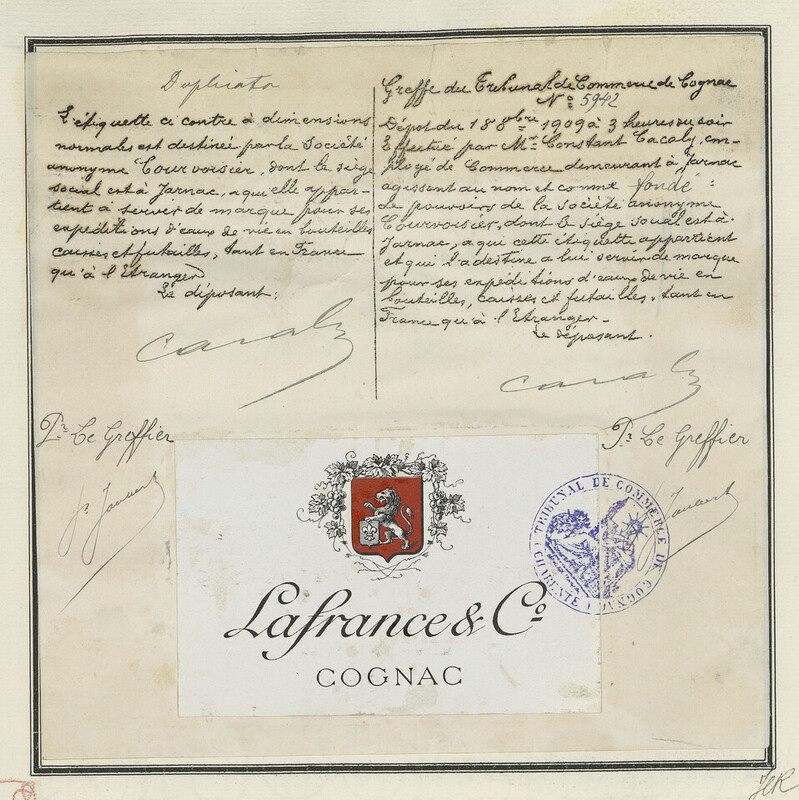 Duplicata
L'étiquette ci contre à dimensions
normales est destinée par la Société
anonyme Courvoisier, dont le siège
social est à Jarnac, a qu elle appar-
tient à servir de marque pour ses
expéditions d'eaux de vie en bouteilles
caisses et futailles, tant en France
qu'à l'Etranger
Le déposant:
Greffe du Tribunal de Commerce de Cognac
No 5942
Dépot du 18 8bre 1909 à 3 heures du soir
Effectué par Mr Constant Cacaly, em-
ployé de Commerce demeurant à Jarnac
agissant au nom et comme fondé
de pouvoirs de la Société anonyme
Courvoisier, dont le siège social est à
Jarnac, a qui cette étiquette appartient
et qui l'a destine a lui servir de marque
pour ses expéditions d'eaux de vie en
bouteilles, caisses et futailles, tant en
France qu'à l'Etranger.-
Le déposant.
Pr Le Greffier
Pr Le Greffier
Lafrance & Co
COGNAC
TRIBUNAL DE COMMERCE DE COGNAC
CHARENTE